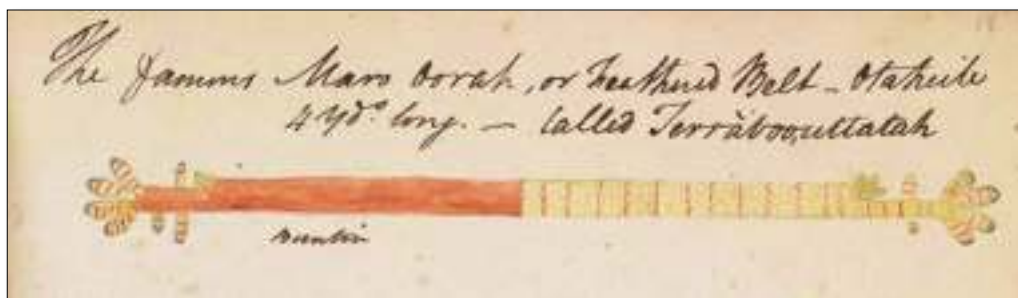 The famous Maro Oorah, or Feathered Belt - Otaheite
4 yds. long. — Called Terràboouttatah
Buntin